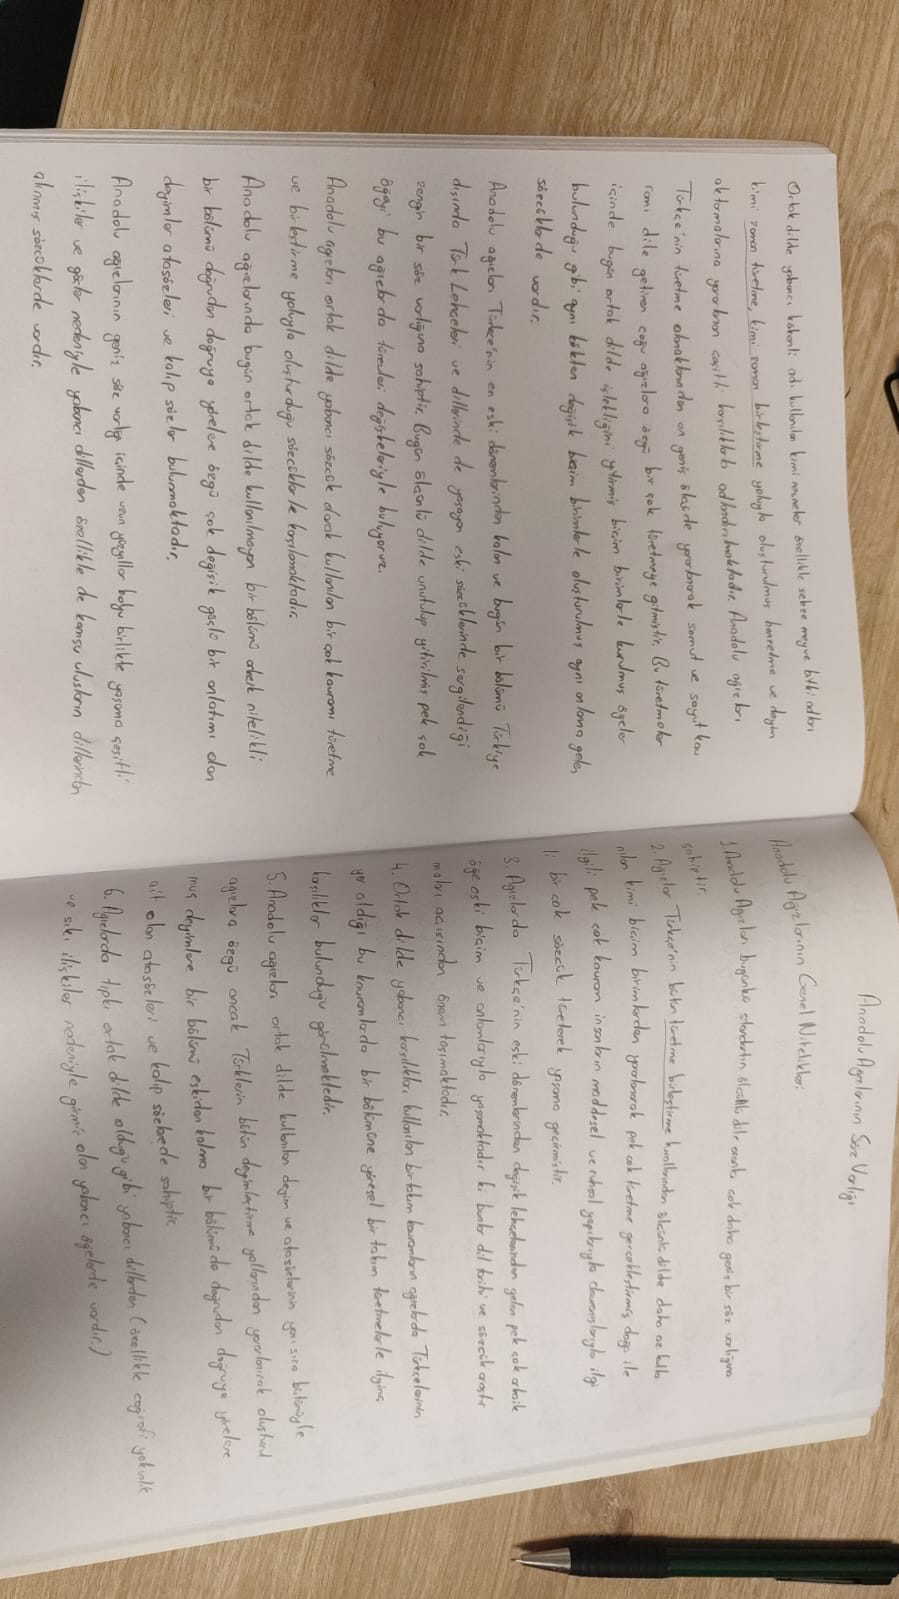 Ortak dilde yabancı kökenli adı kullanılan kimi nesneler özellikle sebze meyve bitki adları
kimi zaman türetme, kimi zaman birleştirme yoluyla oluşturulmuş benzetme ve deyim
aktarmalarına yararlanan çeşitli karşılıklarla adlandırılmaktadır. Anadolu ağızları
Türkçe'nin türetme olanaklarından en geniş ölçüde yararlanarak somut ve soyut kav
ramı dile getiren çoğu ağızlara özgü bir çok türetmeye gitmiştir. Bu türetmeler
içinde bugün ortak dilde işlekliğini yitirmiş biçim birimlerle kurulmuş ögeler
bulunduğu gibi aynı kökten değişik biçim birimlerle oluşturulmuş aynı anlama gelen
sözcüklerde vardır.
Anadolu ağızları Türkçe'nin en eski dönemlerinden kalan ve bugün bir bölümü Türkiye
dışında Türk Lehçeleri ve dillerinde de yaşayan eski sözcüklerinde sergilendiği
zengin bir söz varlığına sahiptir. Bugün ölçünlü dilde unutulup yitirilmiş pek çok
öğeyi bu ağızlarda türevleri değişkeleriyle buluyoruz.
Anadolu ağızları ortak dilde yabancı sözcük olarak kullanılan bir çok kavramı türetme
ve birleştirme yoluyla oluşturduğu sözcüklerle karşılamaktadır.
Anadolu ağızlarında bugün ortak dilde kullanılmayan bir bölümü arkaik nitelikli
bir bölümü doğrudan doğruya yörelere özgü çok değişik güçlü bir anlatımı olan
deyimler atasözleri ve kalıp sözler bulunmaktadır.
Anadolu ağızlarının geniş söz varlığı içinde uzun yüzyıllar boyu birlikte yaşama çeşitli
ilişkiler ve göçler nedeniyle yabancı dillerden özellikle de komşu ulusların dillerinden
alınmış sözcüklerde vardır.
Anadolu Ağızlarının Söz Varlığı
Anadolu Ağızlarının Genel Nitelikleri
1. Anadolu Ağızları bugünkü standartın ölçünlü dile oranla çok daha geniş bir söz varlığına
sahiptir.
2. Ağızlar Türkçe'nin bütün türetme birleştirme kurallarından ölçünlü dilde daha az kulla
nılan kimi biçim birimlerden yararlanarak pek çok türetme gerçekleştirmiş doğa ile
ilgili pek çok kavram insanların maddesel ve ruhsal yapılarıyla davranışlarıyla ilgi
li bir çok sözcük türeterek yaşama geçirmiştir.
3. Ağızlarda Türkçe'nin eski dönemlerinden değişik lehçelerinden gelen pek çok arkaik
öğe eski biçim ve anlamlarıyla yaşamaktadır ki bunlar dil tarihi ve sözcük araştır
maları açısından önem taşımaktadır.
4. Ortak dilde yabancı karşılıkları kullanılan bir takım kavramların ağızlarda Türkçelerinin
yer aldığı bu kavramlarda bir bölümüne yöresel bir takım türetmelerle ilginç
karşılıklar bulunduğu görülmektedir.
5. Anadolu ağızları ortak dilde kullanılan deyim ve atasözlerinin yanı sıra bütünüyle
ağızlara özgü ancak Türklerin bütün deyimleştirme yollarından yararlanarak oluşturul
muş deyimlere bir bölümü eskiden kalma bir bölümüde doğrudan doğruya yörelere
ait olan atasözleri ve kalıp sözlerede sahiptir.
6. Ağızlarda tıpkı ortak dilde olduğu gibi yabancı dillerden (özellikle coğrafi yakınlık
ve sıkı ilişkiler nedeniyle girmiş olan yabancı öğelerde vardır.)